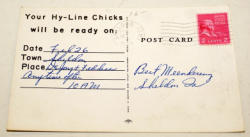 Your Hy-Line Chicks
will be ready on:
Date Feb 26
Town Sheldon
Place
Anytime after
10 AM
POST CARD
Bert
Sheldon Ia